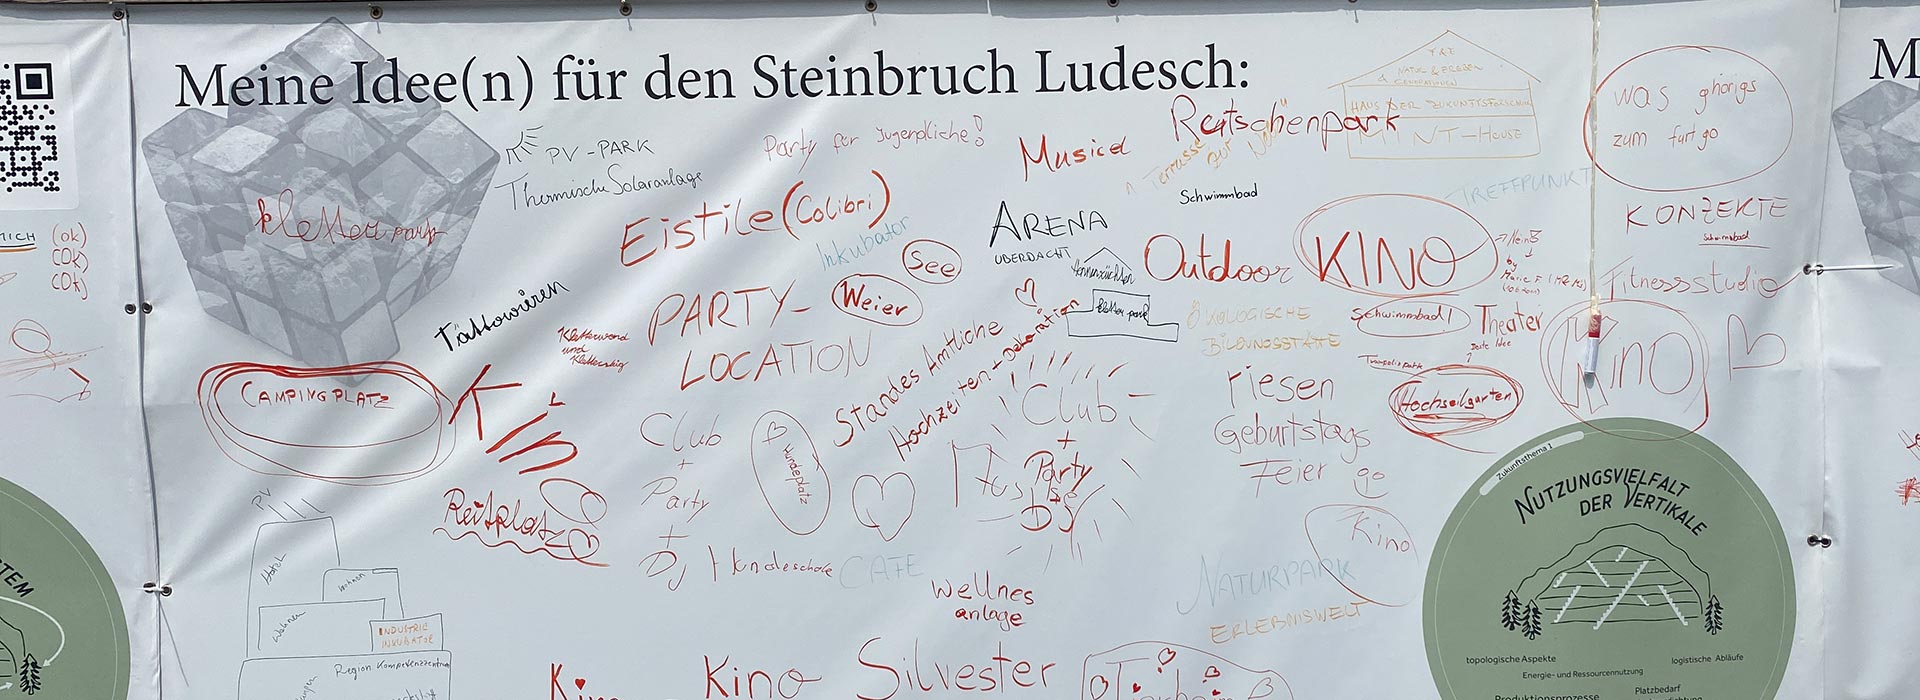 Meine Idee(n) für den Steinbruch Ludesch:
M
PV-PARK
Thermische Solaranlage
Party für Jugendliche!
Musical
Reitschenpark
NATUR & ERDEN
HAUS DER ZUKUNFTSFORSCHUNG
MINT-HOUSE
was ghörigs
zum furt go
Terrasse
Schwimmbad
TREFFPUNKT
KONZERTE
Schwimmbad
Kletterpark
Eistile (Colibri)
Inkubator
See
ARENA
ÜBERDACHT
Outdoor
KINO
Fitnessstudio
MICH (ok)
(ok)
(ok)
Tättowieren
Kletterwand
und
Klettersteig
PARTY-
LOCATION
Weier
Standes Amtliche
Hochzeiten + Dekoration
Kletterpark
ÖKOLOGISCHE
BILDUNGSSTÄTTE
Schwimmbad!
Theater
Beste Idee
Hochseilgarten
Kino
CAMPINGPLATZ
Club
+
Party
+
Dj
Hundeplatz
Club
+
Party
DJ
riesen
Geburtstags
Feier
Reitplatz
Hundeschole
CAFE
Wellnes
anlage
NATURPARK
ERLEBNISWELT
Kino
PV
Hotel
Wohnen
Wohnen
INDUSTRIE
INKUBATOR
Region. Kompetenzzentrum
Kino
Kino
Silvester
Zukunftsthema 1
NUTZUNGSVIELFALT
DER VERTIKALE
topologische Aspekte
logistische Abläufe
Energie- und Ressourcennutzung
Platzbedarf
Produktionsprozesse
TEM